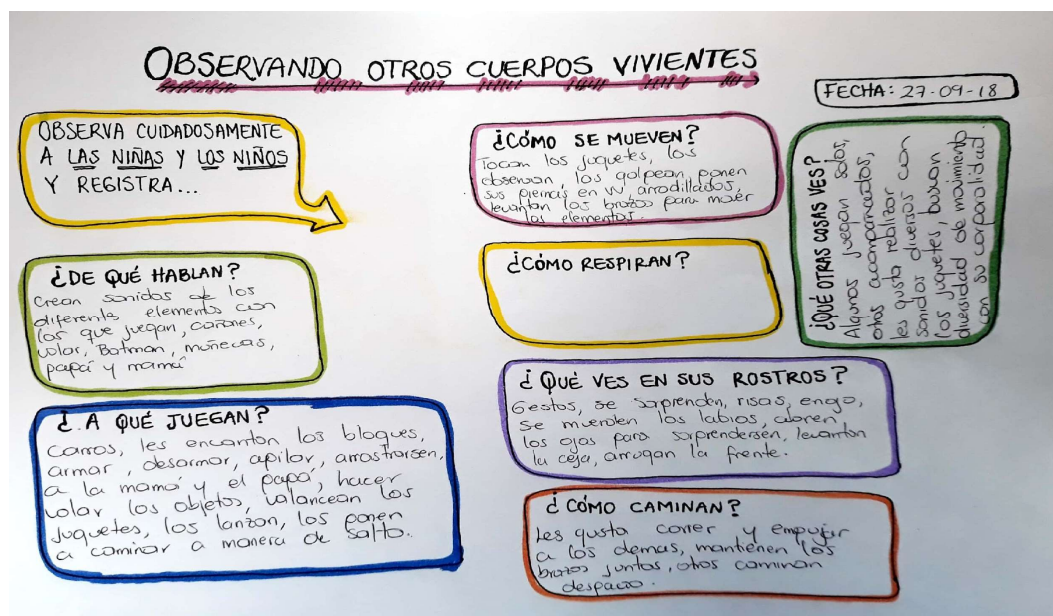 OBSERVANDO OTROS CUERPOS VIVIENTES
FECHA: 27-09-18
OBSERVA CUIDADOSAMENTE
A LAS NIÑAS Y LOS NIÑOS
Y REGISTRA...
¿DE QUÉ HABLAN?
Crean sonidos de los
diferents elementos con
los que juegan, cañones,
volar, Batman, muñecas,
papá y mamá
¿A QUÉ JUEGAN?
Carros, les encantan los bloques,
armar, desarmar, apilar, arrastrarsen,
a la mamá y el papá, hacer
volar los objetos, valancean los
juguetes, los lanzan, los ponen
a caminar a manera de salto.
¿CÓMO SE MUEVEN?
Tocan los juguetes, los
observan, los golpean, ponen
sus piernas en W, arrodillados,
levantan los brazos para mover
los elementos.
¿CÓMO RESPIRAN?
¿QUÉ VES EN SUS ROSTROS?
Gestos, se sorprenden, risas, enojo,
se muerden los labios, abren
los ojos para sorprendersen, levantan
la ceja, arrugan la frente.
¿CÓMO CAMINAN?
Les gusta correr y empujar
a los demas, mantienen los
brazos juntos, otros caminan
despacio.
¿QUÉ OTRAS COSAS VES?
Algunos juegan solos,
otros acompañados,
les gusta realizar
sonidos diversos con
los juguetes, buscan
diversidad de movimiento
con su corporalidad.